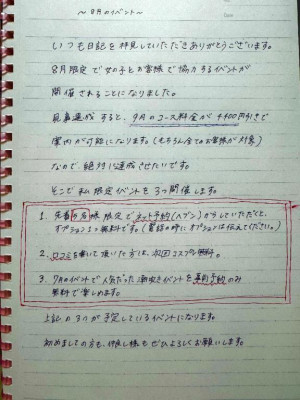 ～8月のイベント～
いつも日記を拝見していただきありがとうございます。
8月限定で女の子とお客様で協力するイベントが
開催されることになりました。
見事達成すると、9月のコース料金が4400円引きで
案内が可能になります。(もちろん全てのお客様が対象)
なので、絶対に達成させたいです。
そこで私限定イベントを3つ開催します。
1. 先着 名様限定でネット予約(ヘブン)からしていただくと、
オプション1つ無料です。(電話の時にオプションは伝えてください。)
2. 口コミを書いて頂いた方は、次回コスプレ無料。
3. 7月のイベントで人気だった潮吹きイベントを事前予約のみ
無料で楽しめます。
上記の3つが予定しているイベントになります。
初めましての方も、仲良し様もぜひよろしくお願いします。